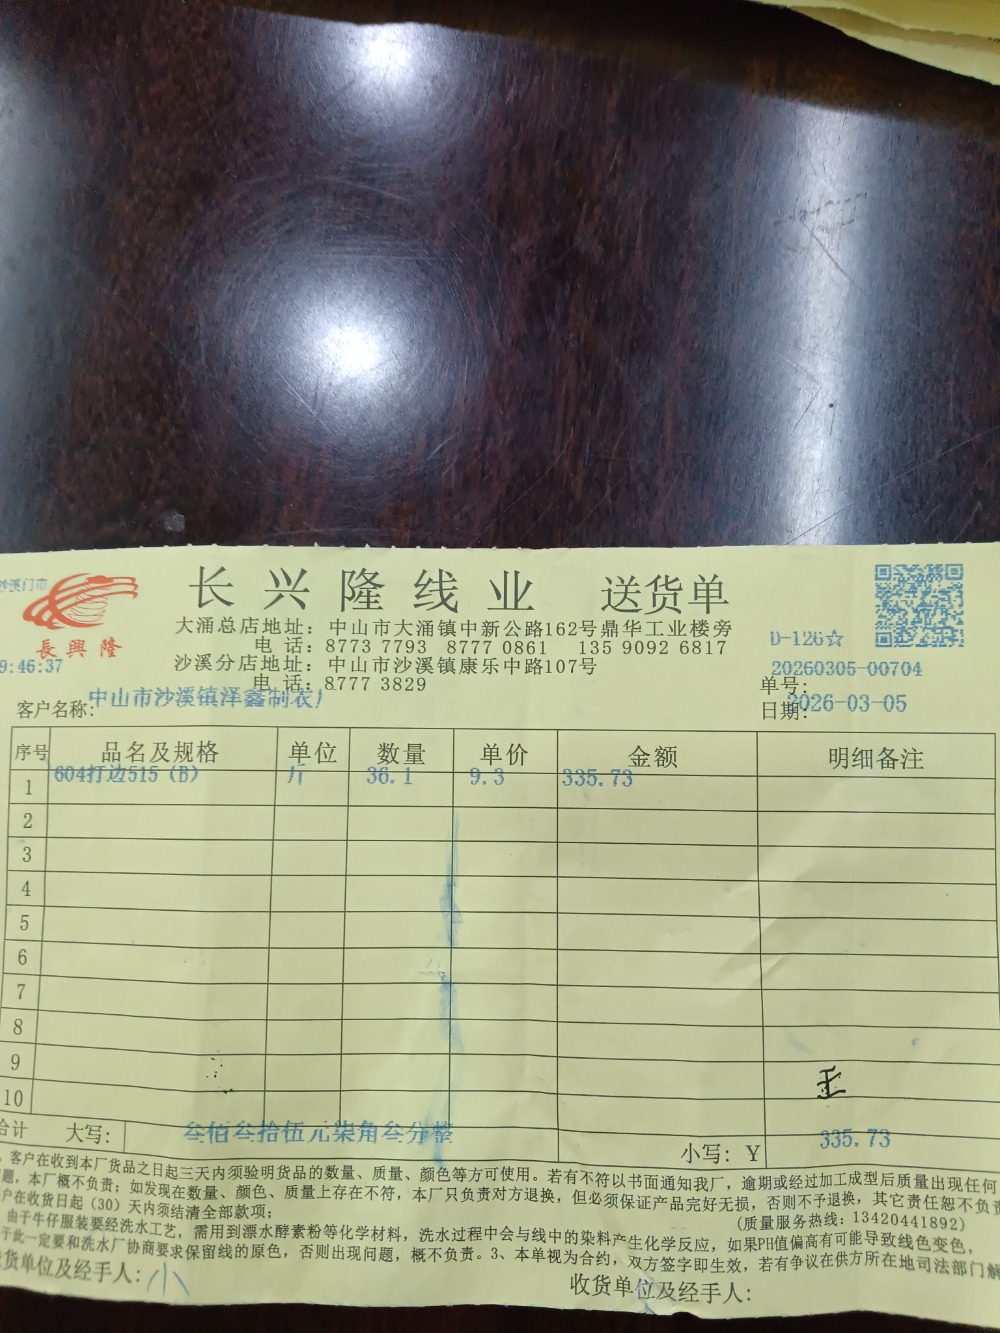 沙溪门市
长兴隆线业 送货单
長興隆
大涌总店地址：中山市大涌镇中新公路162号鼎华工业楼旁
电 话：8773 7793 8777 0861 135 9092 6817
沙溪分店地址：中山市沙溪镇康乐中路107号
电 话：8777 3829
D-126☆
9:46:37
单号：20260305-00704
客户名称：中山市沙溪镇泽鑫制衣
日期：2026-03-05
序号 品名及规格 单位 数量 单价 金额 明细备注
1 604打边515（B） 斤 36.1 9.3 335.73
2
3
4
5
6
7
8
9
10
合计 大写：叁佰叁拾伍元柒角叁分整 小写：Y 335.73
客户在收到本厂货品之日起三天内须验明货品的数量、质量、颜色等方可使用。若有不符以书面通知我厂，逾期或经过加工成型后质量出现任何
题，本厂概不负责；如发现在数量、颜色、质量上存在不符，本厂只负责对方退换，但必须保证产品完好无损，否则不予退换，其它责任恕不负责
户在收货日起（30）天内须结清全部款项；
（质量服务热线：13420441892）
由于牛仔服装要经洗水工艺，需用到漂水酵素粉等化学材料，洗水过程中会与线中的染料产生化学反应，如果PH值偏高有可能导致线色变色，
于此一定要和洗水厂协商要求保留线的原色，否则出现问题，概不负责。3、本单视为合约，双方签字即生效，若有争议在供方所在地司法部门解
货单位及经手人：小
收货单位及经手人：